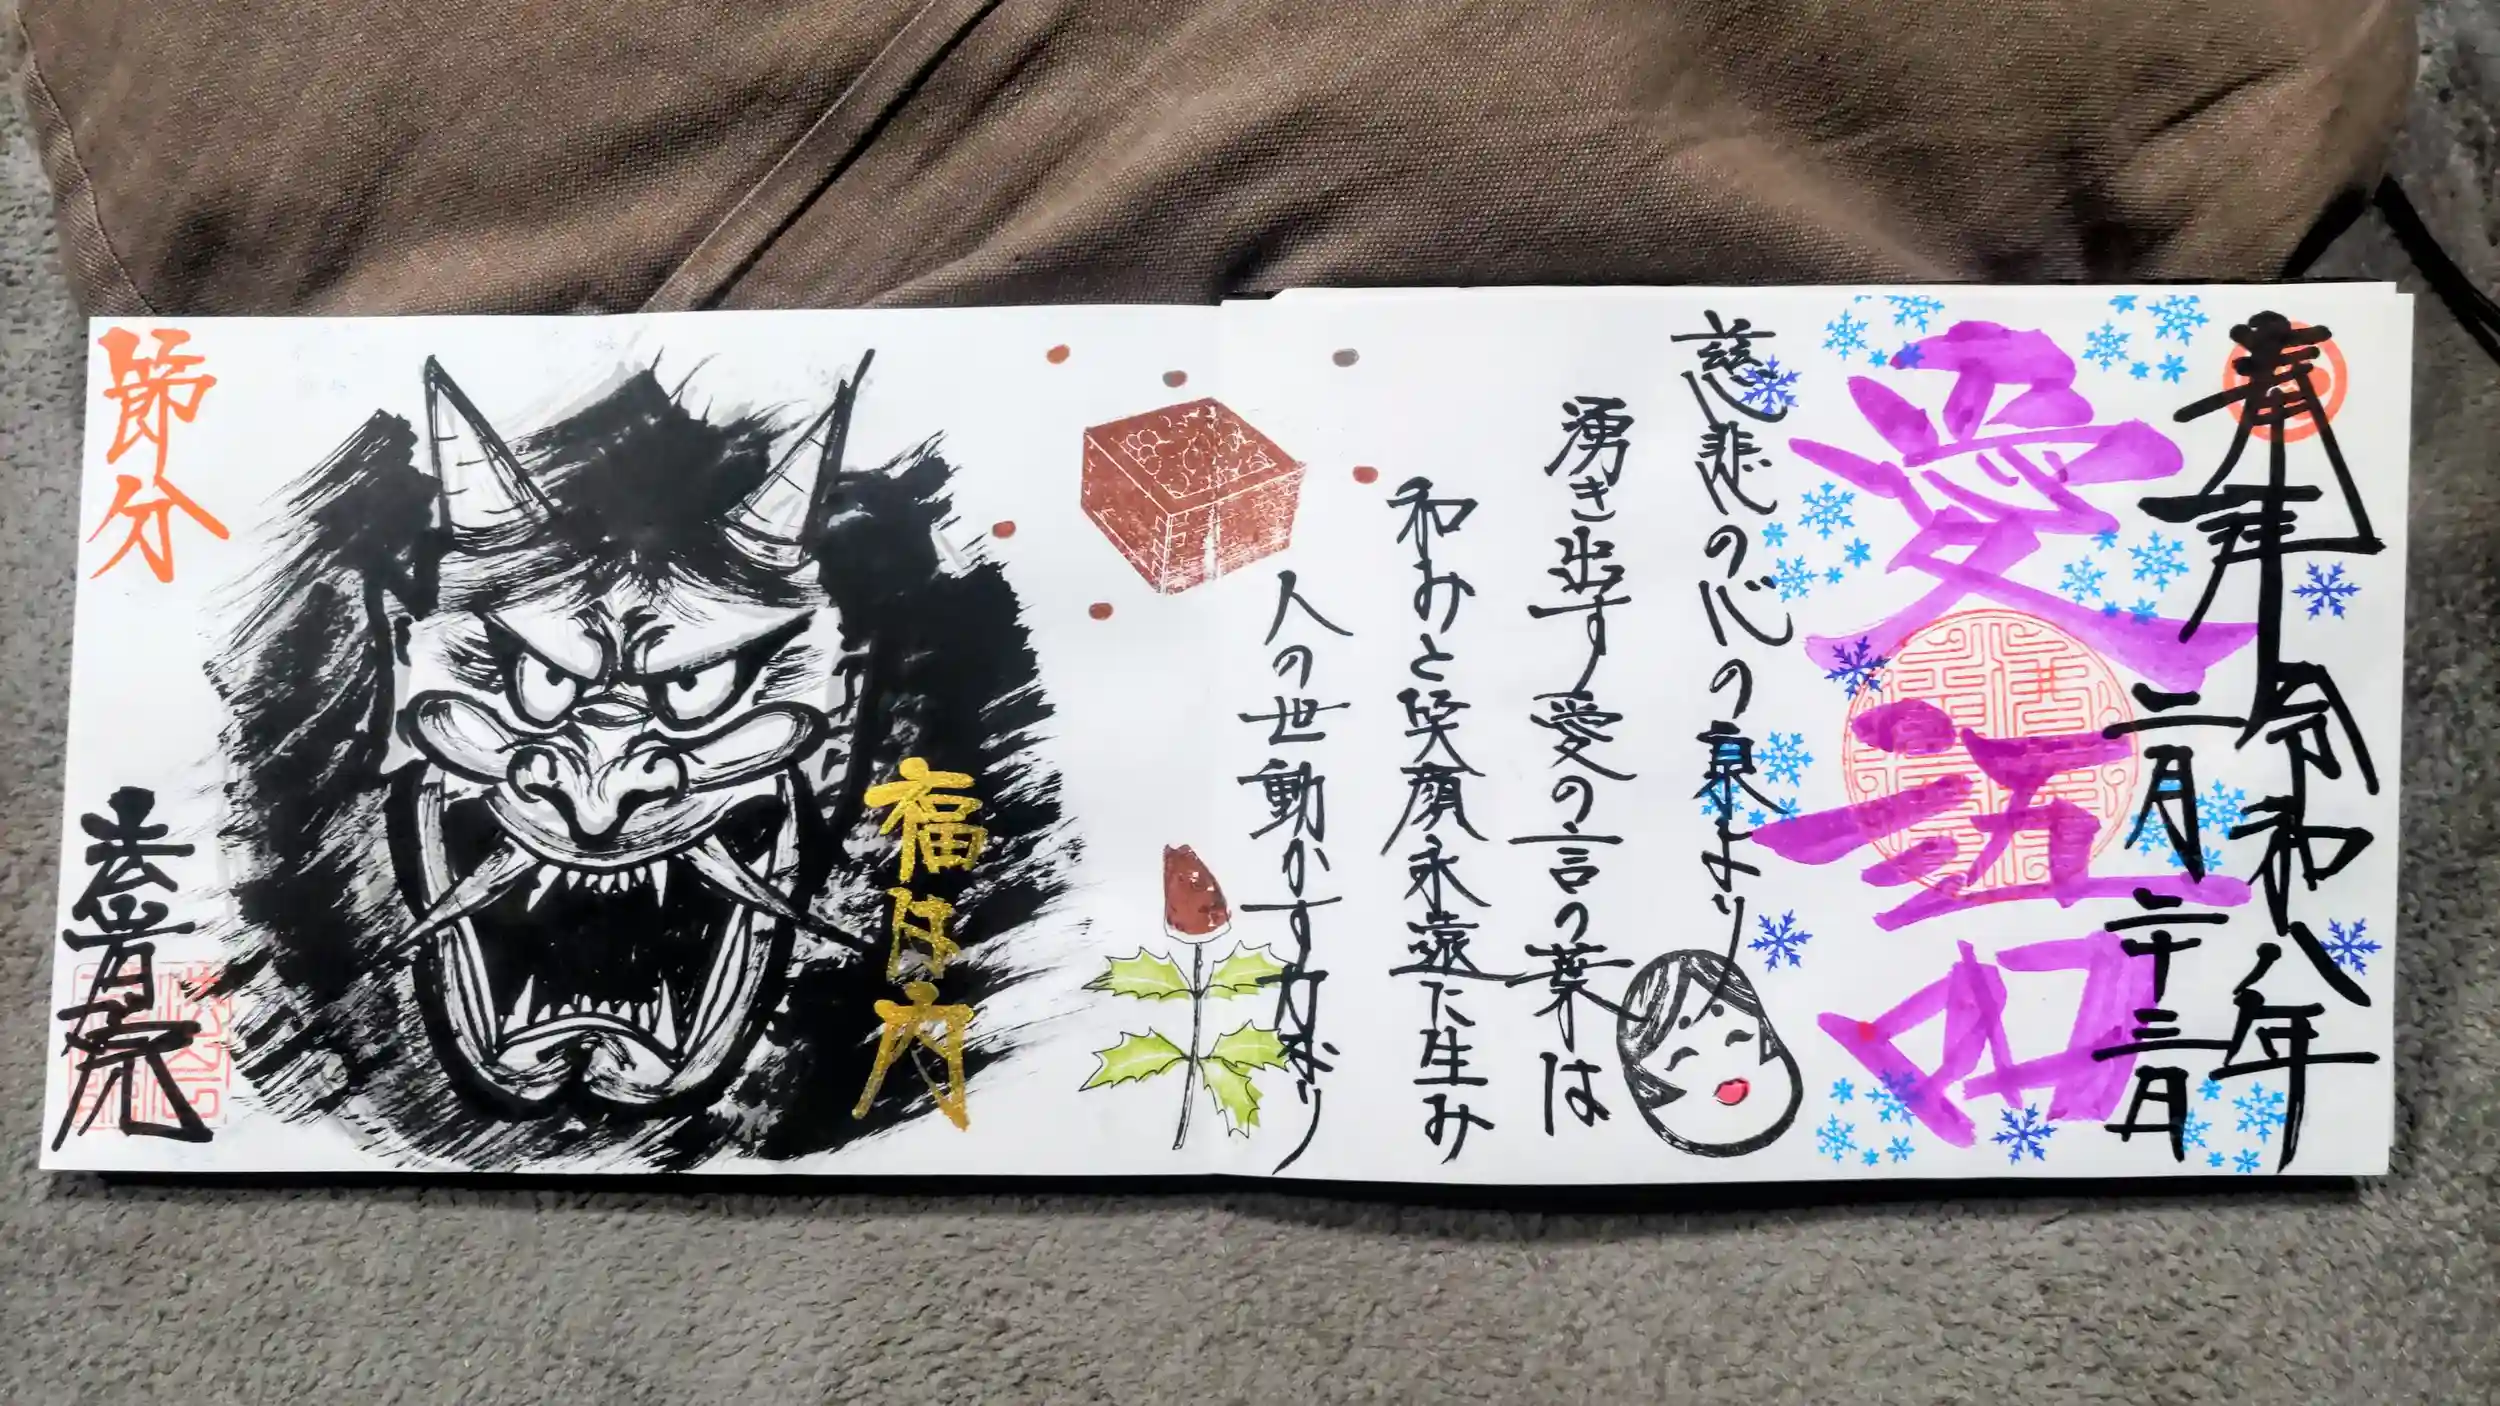 奉拝 令和八年
二月二十三日
愛語
慈悲の心の泉より
湧き出す愛の言の葉は
和みと笑顔永遠に生み
人の世動かす力なり
福は内
節分